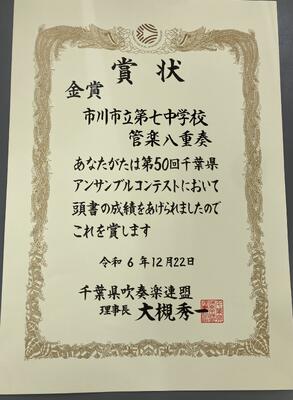 賞状
金賞
市川市立第七中学校
管楽八重奏
あなたがたは第50回千葉県
アンサンブルコンテストにおいて
頭書の成績をあげられましたので
これを賞します
令和6年12月22日
千葉県吹奏楽連盟
理事長 大槻秀一